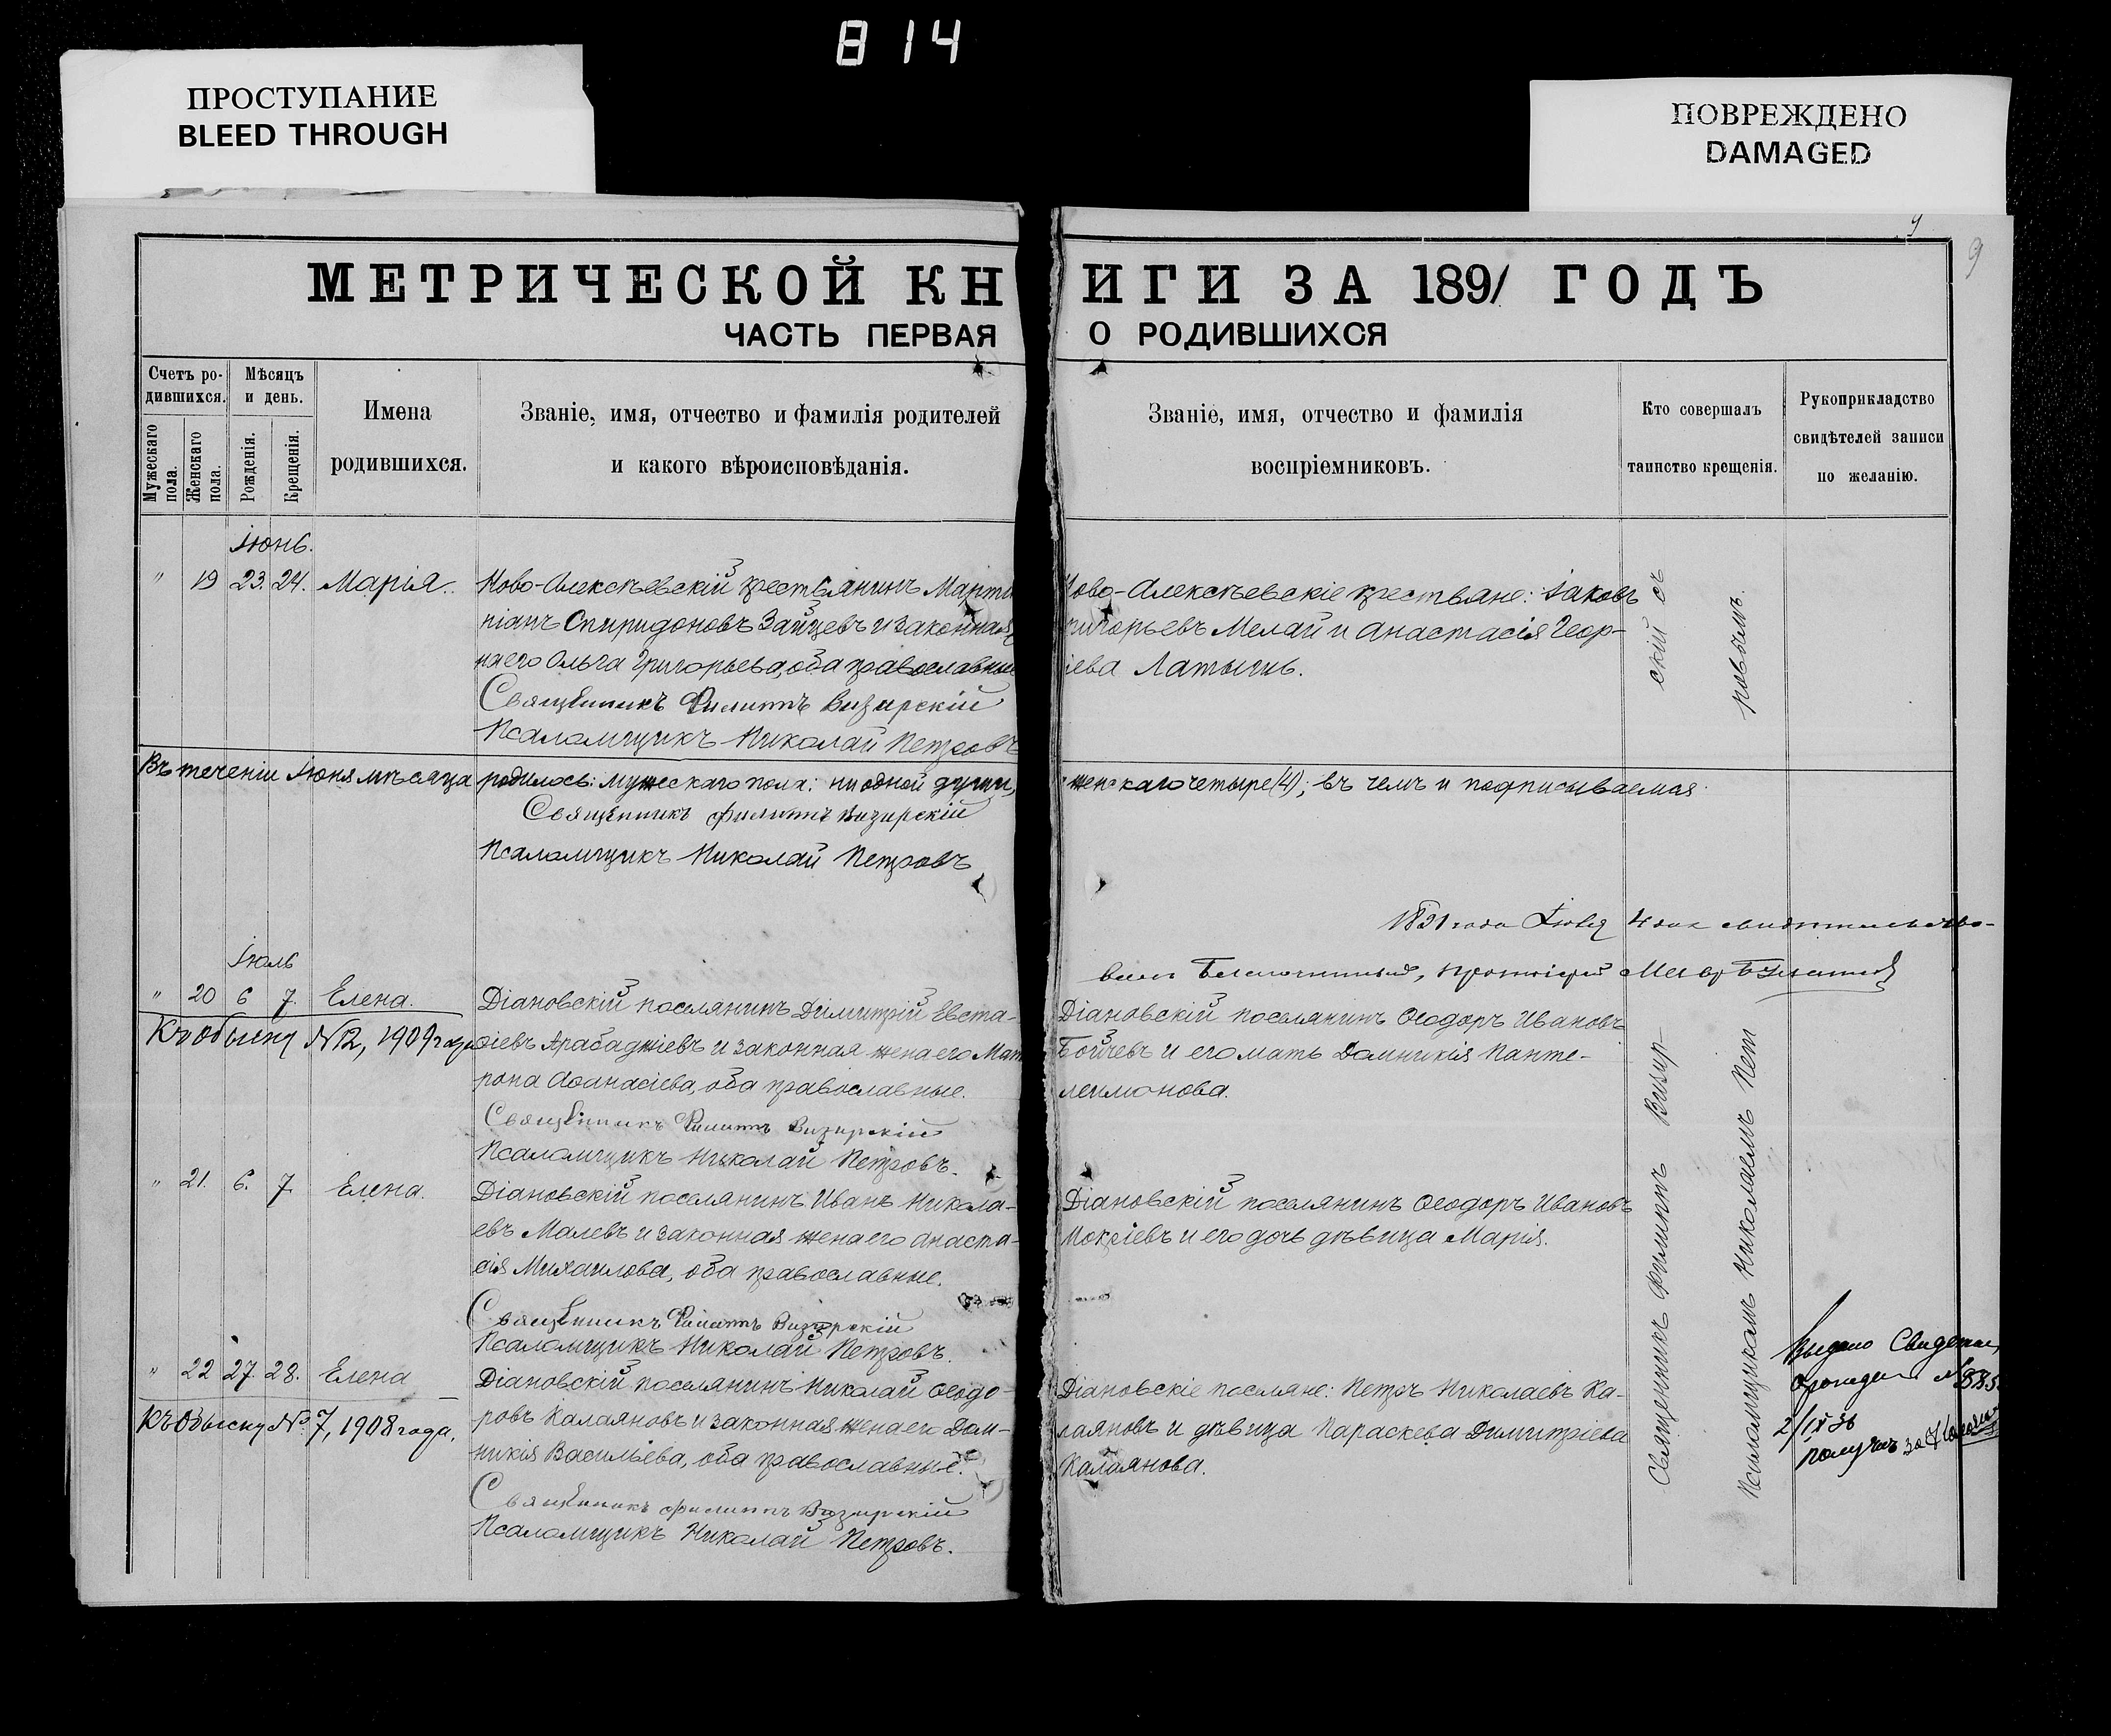 814
ПРОСТУПАНИЕ
BLEED THROUGH
ПОВРЕЖДЕНО
DAMAGED
9
9
МЕТРИЧЕСКОЙ КНИГИ ЗА 1891 ГОДЪ
ЧАСТЬ ПЕРВАЯ О РОДИВШИХСЯ
Счетъ ро-
дившихся.
Мужескаго
пола.
Женскаго
пола.
Мѣсяцъ
и день.
Рожденія.
Крещенія.
Имена
родившихся.
Званіе, имя, отчество и фамилія родителей
и какого вѣроисповѣданія.
Званіе, имя, отчество и фамилія
воспріемниковъ.
Кто совершалъ
таинство крещенія.
Рукоприкладство
свидѣтелей записи
по желанію.
Іюнь.
" 19 23. 24. Марія.
Ново-Алексѣевскій крестьянинъ Марти
ніанъ Спиридоновъ Зайцевъ и законная
на его Ольга Григорьева, оба православные
Священникъ Филиппъ Визирскій
Псаломщикъ Николай Петровъ
Ново-Алексѣевскіе крестьяне: Іаковъ
Григорьевъ Мелай и Анастасія Геор-
іева Латышь.
Въ теченіи Іюня мѣсяца родилось: мужескаго пола: ни одной души, женскаго четыре (4); въ чемъ и подписываемся
Священникъ Филиппъ Визирскій
Псаломщикъ Николай Петровъ
1891 года Іюля 4 дня свидѣтельство-
валъ Благочинный, протоіерей
Іюль
" 20 6 7. Елена.
Къ обыску №12, 1909 года
Діановскій поселянинъ Димитрій Евста-
ѳіевъ Арабаджіевъ и законная жена его Мат
рона Аѳанасіева, оба православные.
Священникъ Филиппъ Визирскій
Псаломщикъ Николай Петровъ.
Діановскій поселянинъ Ѳеодоръ Ивановъ
Бойчевъ и его мать Домникія Панте-
леимонова.
" 21. 6. 7. Елена.
Діановскій поселянинъ Иванъ Никола-
евъ Малевъ и законная жена его Анаста-
сія Михаилова, оба православные.
Священникъ Филиппъ Визирскій
Псаломщикъ Николай Петровъ.
Діановскій поселянинъ Ѳеодоръ Ивановъ
Мокріевъ и его дочь дѣвица Марія.
" 22 27. 28. Елена
Къ Обыску № 7, 1908 года.
Діановскій поселянинъ Николай Ѳеодо-
ровъ Калаяновъ и законная жена его Дом-
никія Васильева, оба православные.
Священникъ Филиппъ Визирскій
Псаломщикъ Николай Петровъ.
Діановскіе поселяне: Петръ Николаевъ Ка-
лаяновъ и дѣвица Параскева Димитріева
Калаянова.
Священникъ Филиппъ Визирскій съ
Псаломщикомъ Николаемъ Петровымъ.
Выдано Свидетел
о рожден № 885
2/IX 36
получъ за